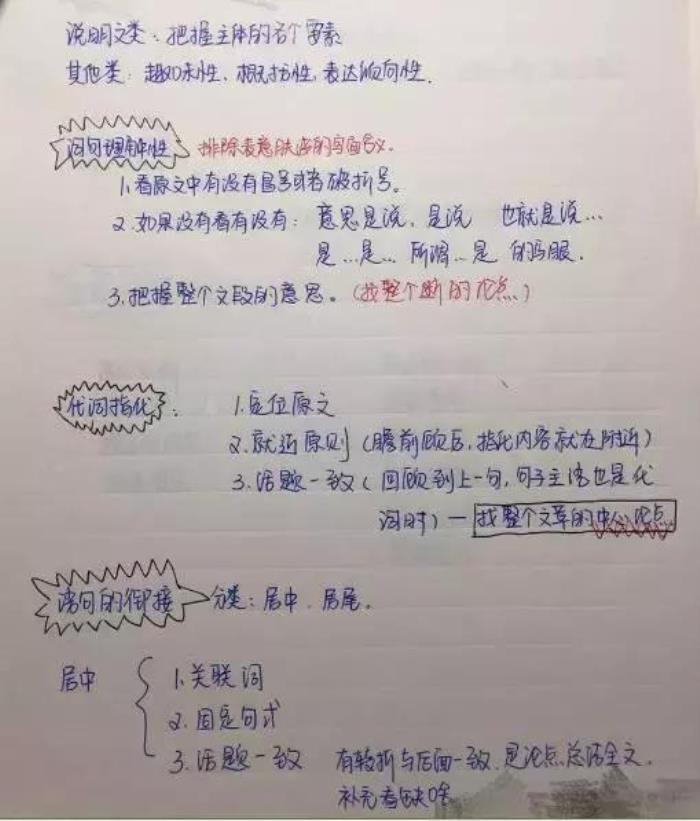 说明文类：把握主体的各个要素
其他类：趣味性、概括性、表达倾向性.
词句理解性 排除表意肤浅的字面含义。
1.看原文中有没有冒号或者破折号。
2.如果没有看有没有：意思是说、是说 也就是说…
是…是… 所谓…是 的
3.把握整个文段的意思。（找整个 的论点）
代词指代：
1.定位原文
2.就近原则（瞻前顾后，指代内容就在附近）
3.话题一致（回顾到上一句，句子主语也是代
词时）—找整个文章的中心论点
语句的衔接 分类：居中、居尾。
居中
1.关联词
2.固定句式
3.话题一致 有转折与后面一致、是论点、总结全文、
补充看缺啥